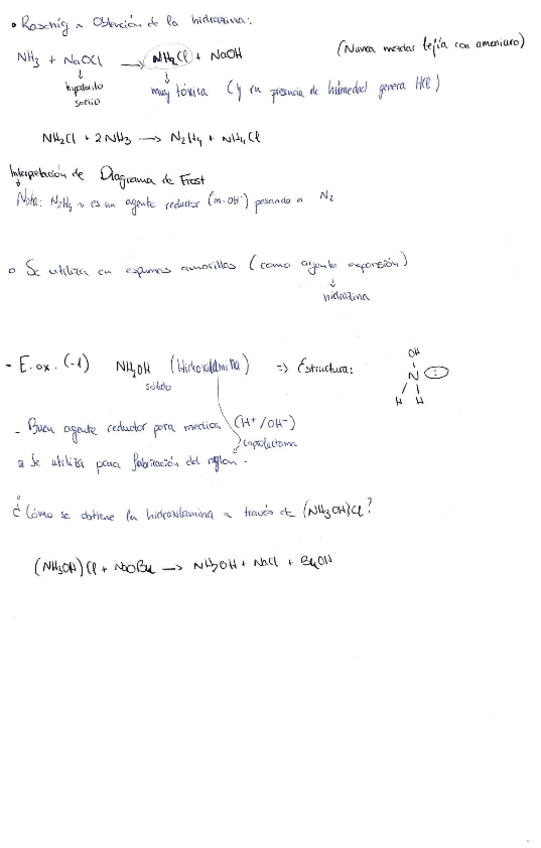 • Raschig ~ Obtención de la hidrazina:
NH3 + NaOCl → NH2Cl + NaOH (Nunca mezclar lejía con amoniaco)
↓ hipoclorito sodio
↓ muy tóxica (y en presencia de humedad genera HCl)
NH2Cl + 2NH3 → N2H4 + NH4Cl
Interpretación de Diagrama de Frost
Nota: N2H4 ~ es un agente reductor (m. OH-) pasando a N2
o Se utiliza en espumas amarillas (como agente expansión)
↓
hidrazina
- E.ox. (-1) NH2OH (Hidroxilamina) => Estructura:
sólido
OH
N
H H
- Buen agente reductor para medios (H+/OH-)
caprolactama
Se utiliza para fabricación del nylon.
¿Cómo se obtiene la hidroxilamina a través de (NH3OH)Cl?
(NH3OH)Cl + NaOBu → NH2OH + NaCl + BuOH